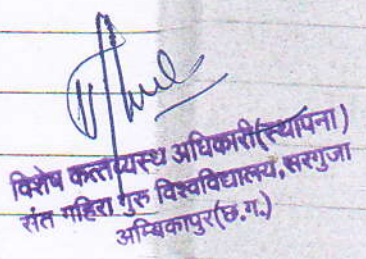 विशेष कर्त्तव्यस्थ अधिकारी(स्थापना)
संत गहिरा गुरु विश्वविद्यालय, सरगुजा
अम्बिकापुर(छ.ग.)